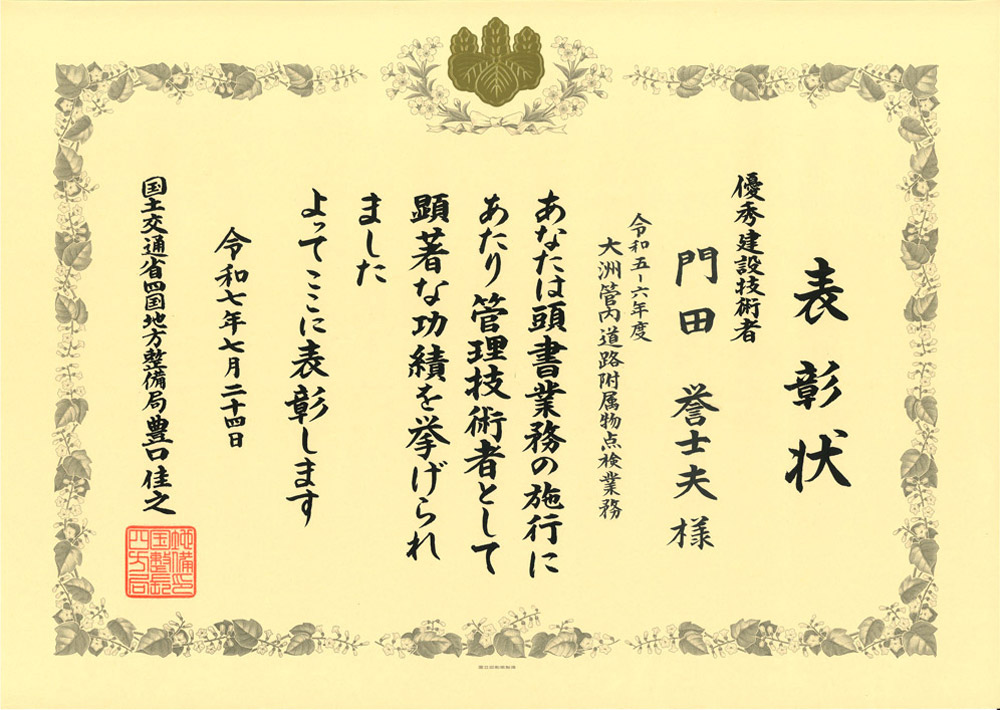 表彰状
優秀建設技術者
門田 誉士夫 様
令和五-六年度
大洲管内道路附属物点検業務
あなたは頭書業務の施行に
あたり管理技術者として
顕著な功績を挙げられ
ました
よってここに表彰します
令和七年七月二十四日
国土交通省四国地方整備局 豊口佳之